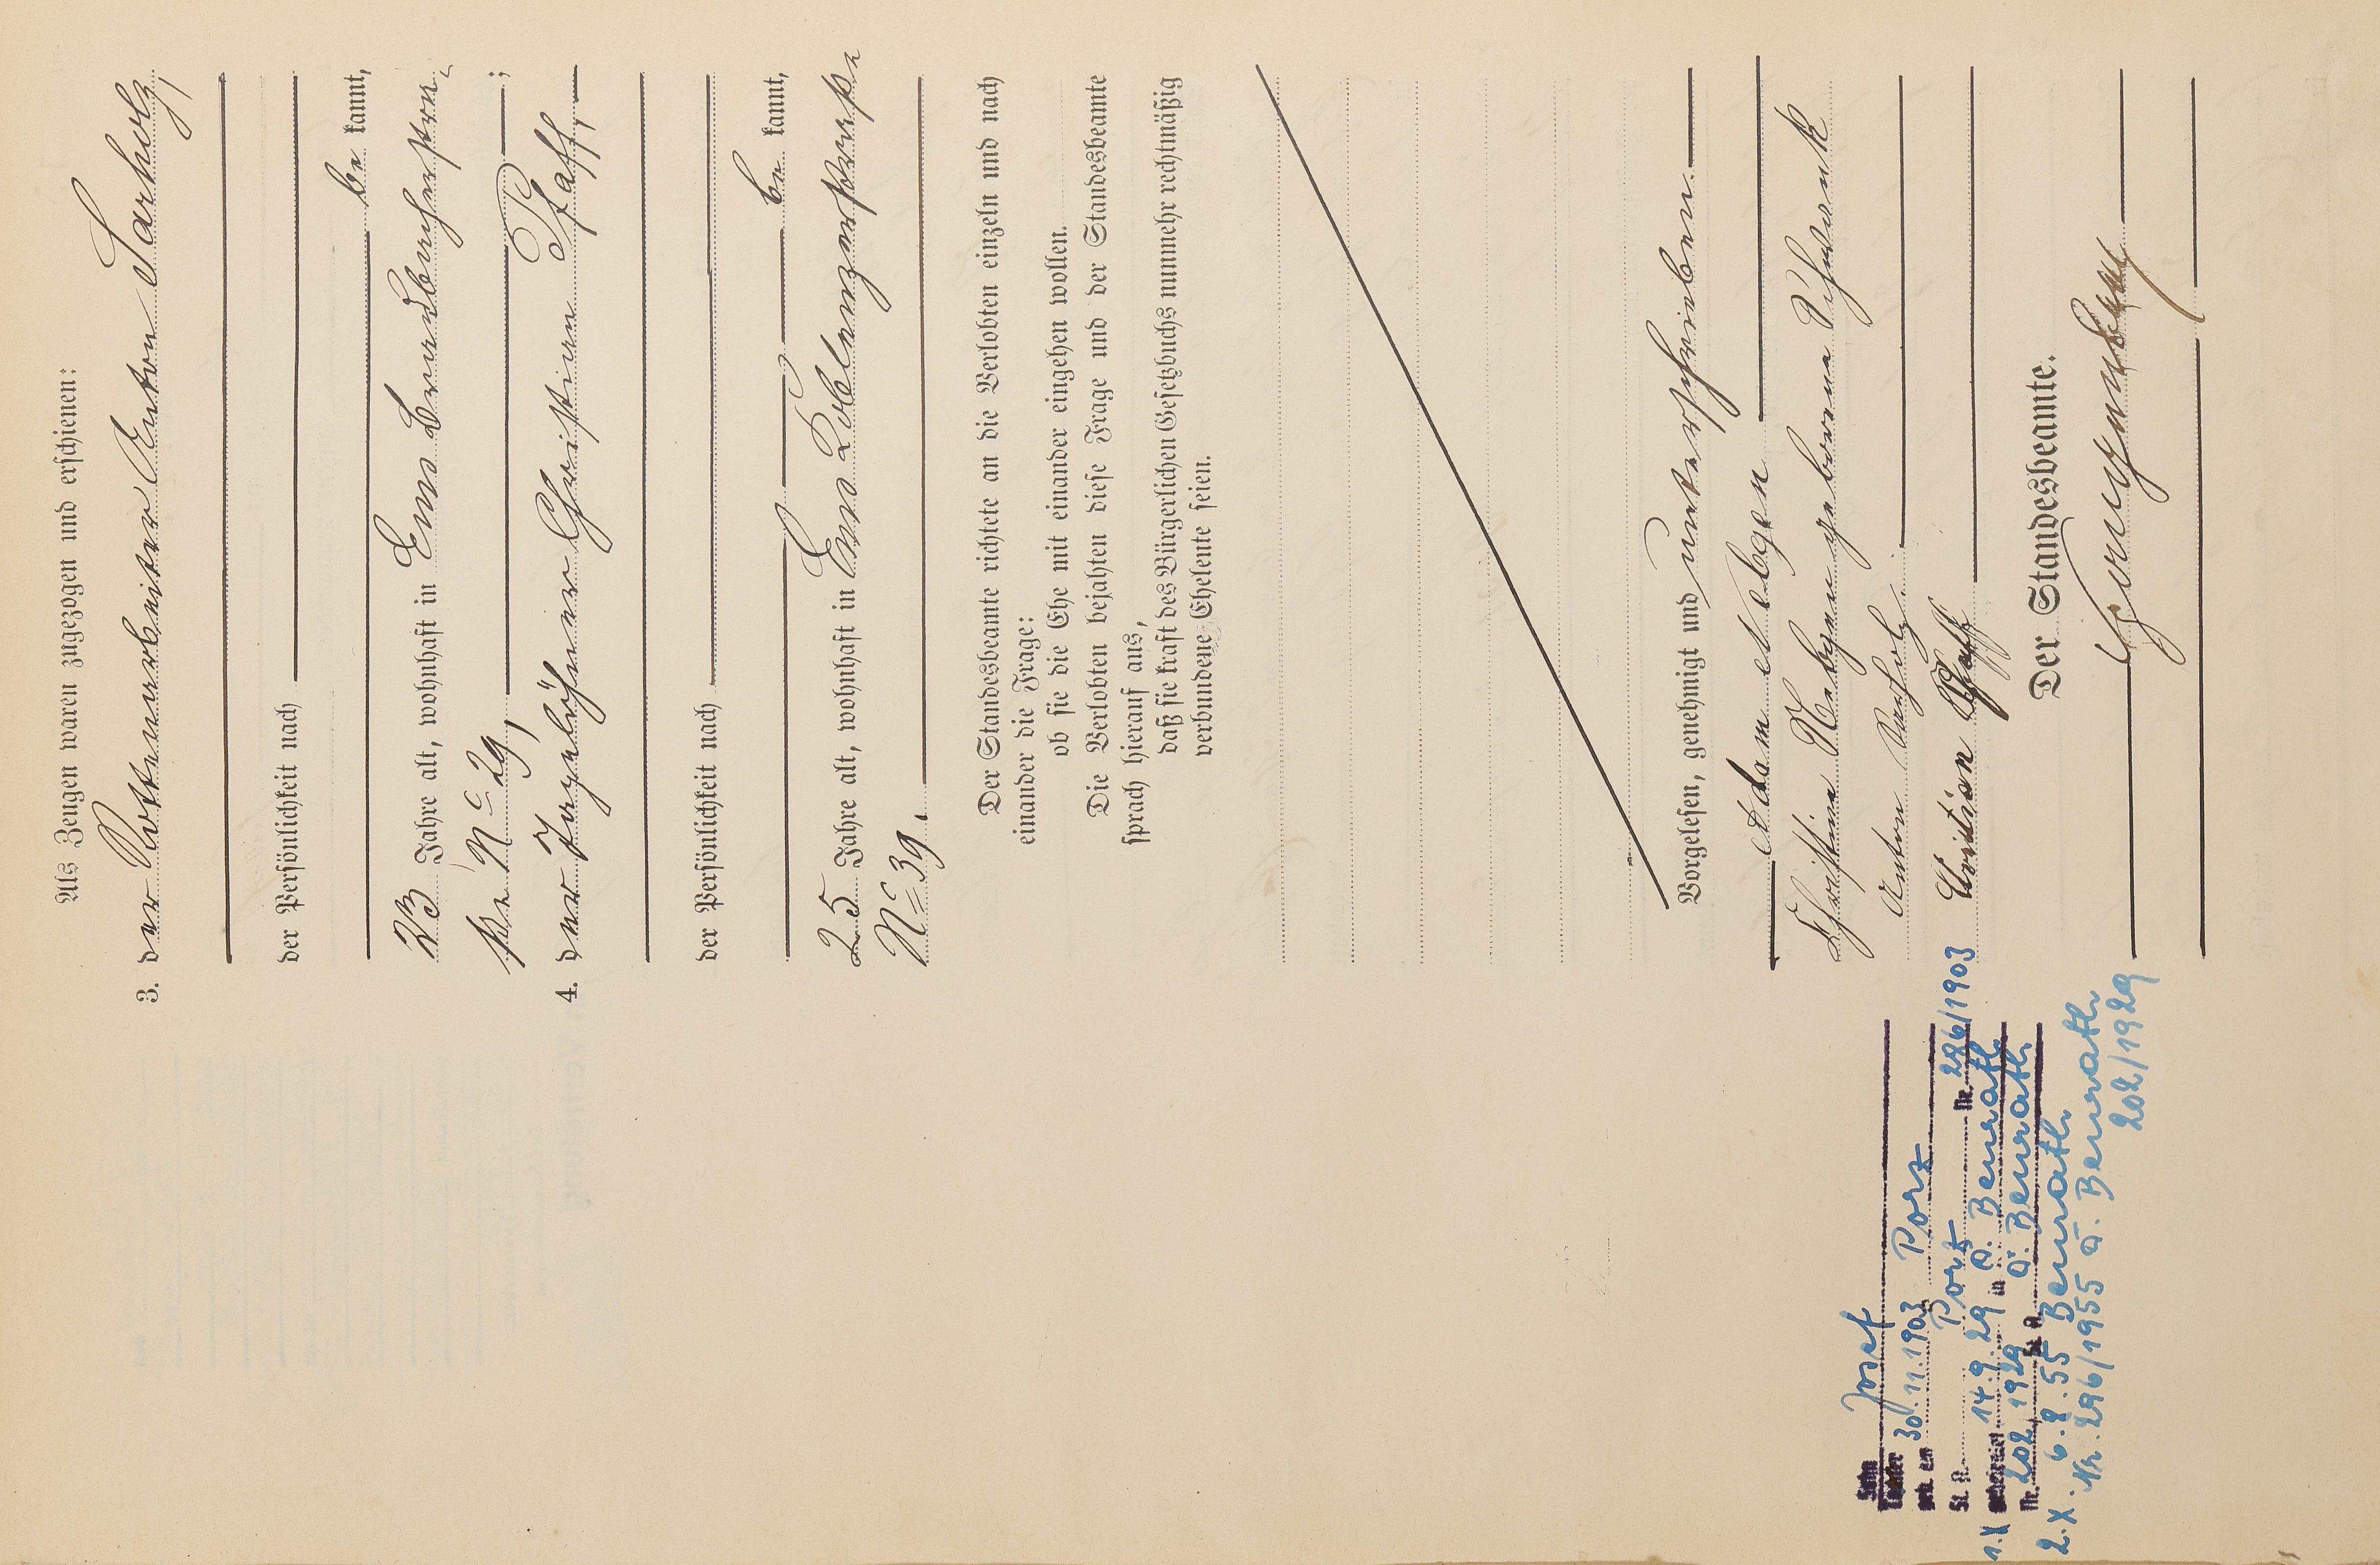 Als Zeugen waren zugezogen und erschienen:
3. der Rottenarbeiter Anton Sarholz,
der Persönlichkeit nach
be kannt,
23 Jahre alt, wohnhaft in Ems Braubacherstra-
ße Nº 29, ;
4. der Tagelöhner Christian Pfaff,
der Persönlichkeit nach
be kannt,
25 Jahre alt, wohnhaft in Ems Coblenzerstraße
Nº 39.
Der Standesbeamte richtete an die Verlobten einzeln und nach
einander die Frage:
ob sie die Ehe mit einander eingehen wollen.
Die Verlobten bejahten diese Frage und der Standesbeamte
sprach hierauf aus,
daß sie kraft des Bürgerlichen Gesetzbuchs nunmehr rechtmäßig
verbundene Eheleute seien.
Vorgelesen, genehmigt und unterschrieben.
Adam Nebgen
Christine Nebgen geborene Schwenk
Anton Sarholz.
Cristian Pfaff
Der Standesbeamte.
Sohn Josef
geb. am 30.11.1903 Porz
St. A. Porz Nr. 286/1903
1. X geheiratet 14.9.29 in D. Benrath
Nr. 202/1929 St. A. D. Benrath
2. X. 6.8.55 Benrath
Nr. 296/1955 D. Benrath
202/1929